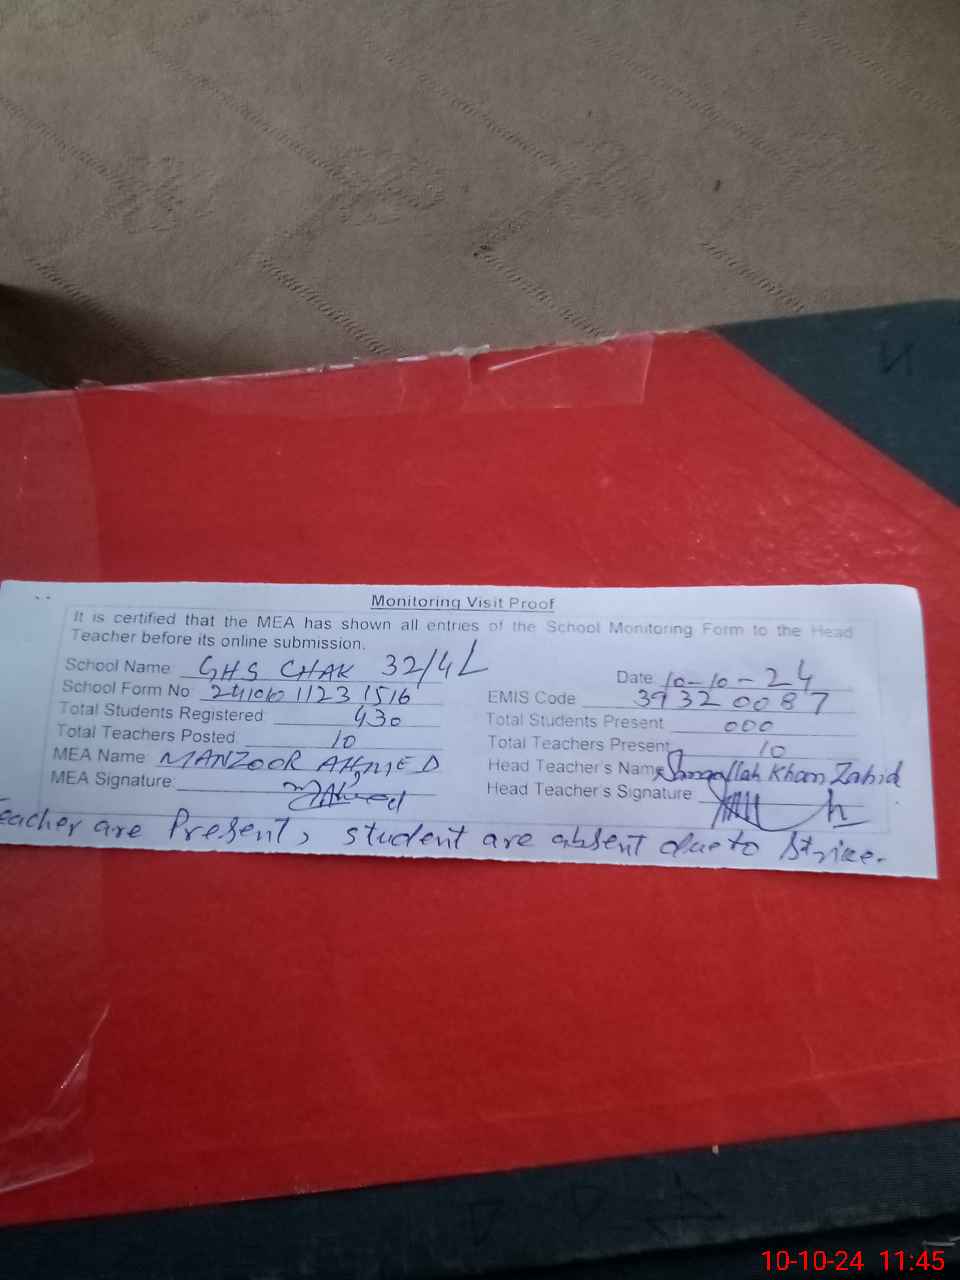 Monitoring Visit Proof
It is certified that the MEA has shown all entries of the School Monitoring Form to the Head
Teacher before its online submission.
School Name GHS CHAK 32/4L
Date 10-10-24
School Form No
EMIS Code 39320087
Total Students Registered 430
Total Students Present 000
Total Teachers Posted 10
Total Teachers Present 10
MEA Name MANZOOR AHMED
Head Teacher's Name Khan Zahid
MEA Signature:
Head Teacher's Signature
eacher are Present, student are absent due to strike.
10-10-24 11:45